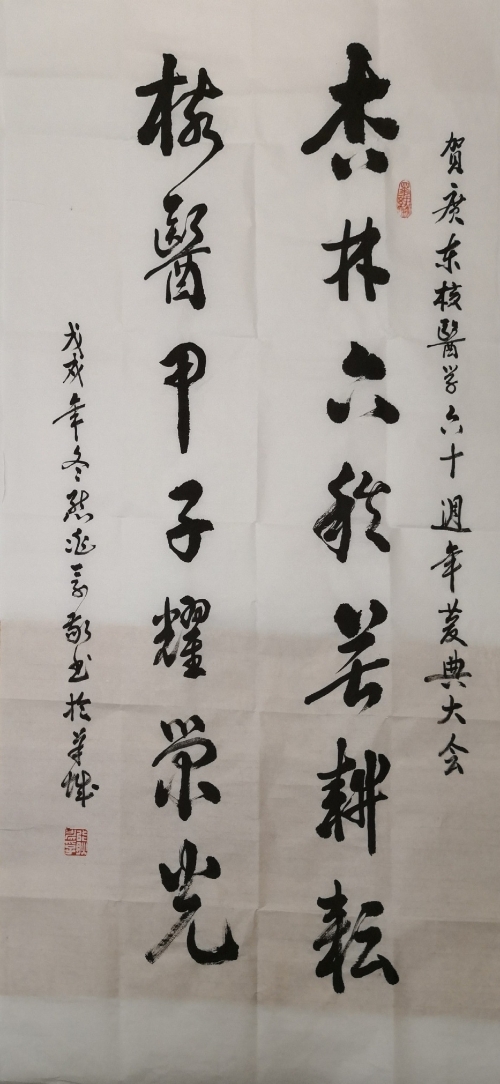 贺广东核醫学六十週年慶典大会
杏林六秩苦耕耘
核醫甲子耀荣光
戊戌年冬敬书於羊城